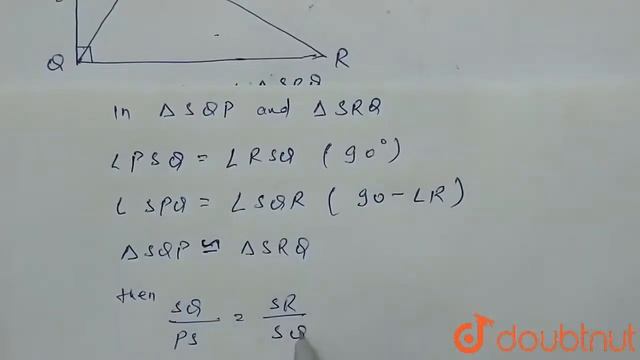 Q R
In Δ SQP and Δ SRQ
∠PSQ = ∠RSQ ( 90° )
∠ SPQ = ∠SQR ( 90 - ∠R )
Δ SQP ≌ Δ SRQ
then SQ/PS = SR/SQ
doubtnut